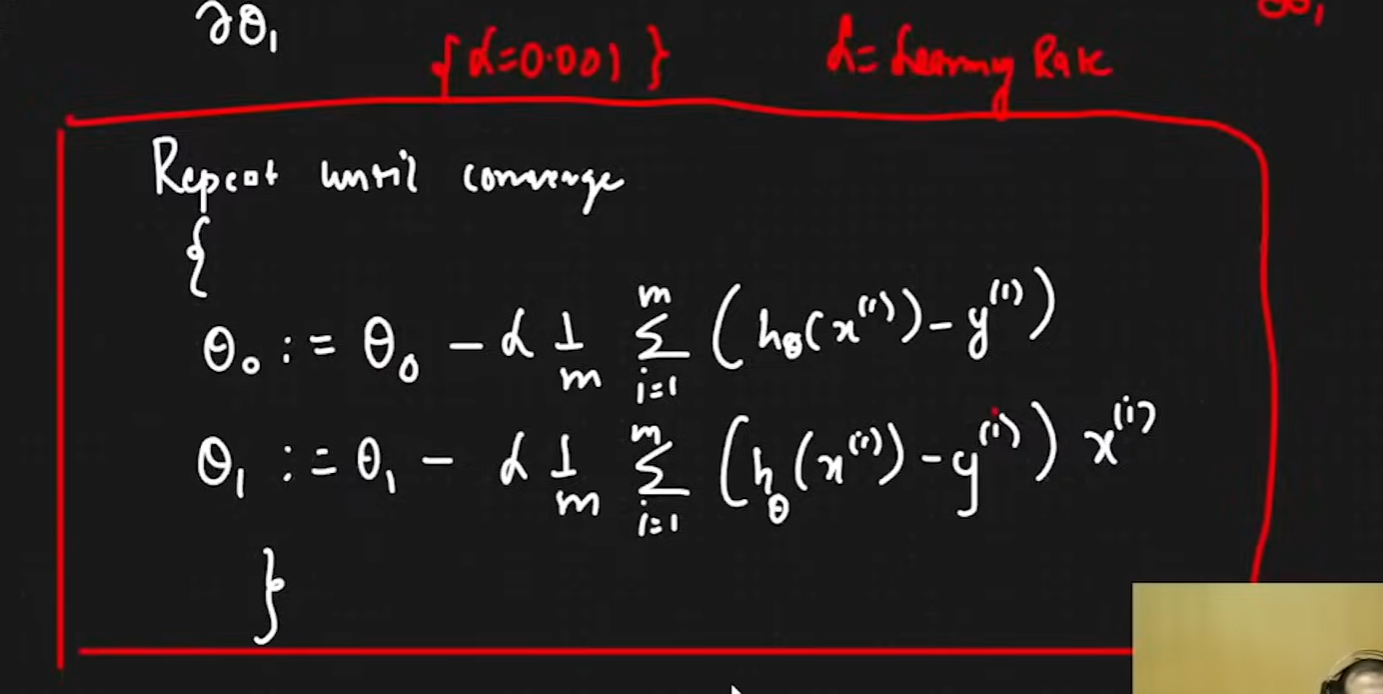 ∂θ₁
∂θ₁
{α=0.001} α= Learning Rate
Repeat until converge
{
θ₀ := θ₀ - α 1/m ∑_{i=1}^{m} (h_θ(x⁽ⁱ⁾) - y⁽ⁱ⁾)
θ₁ := θ₁ - α 1/m ∑_{i=1}^{m} (h_θ(x⁽ⁱ⁾) - y⁽ⁱ⁾) x⁽ⁱ⁾
}